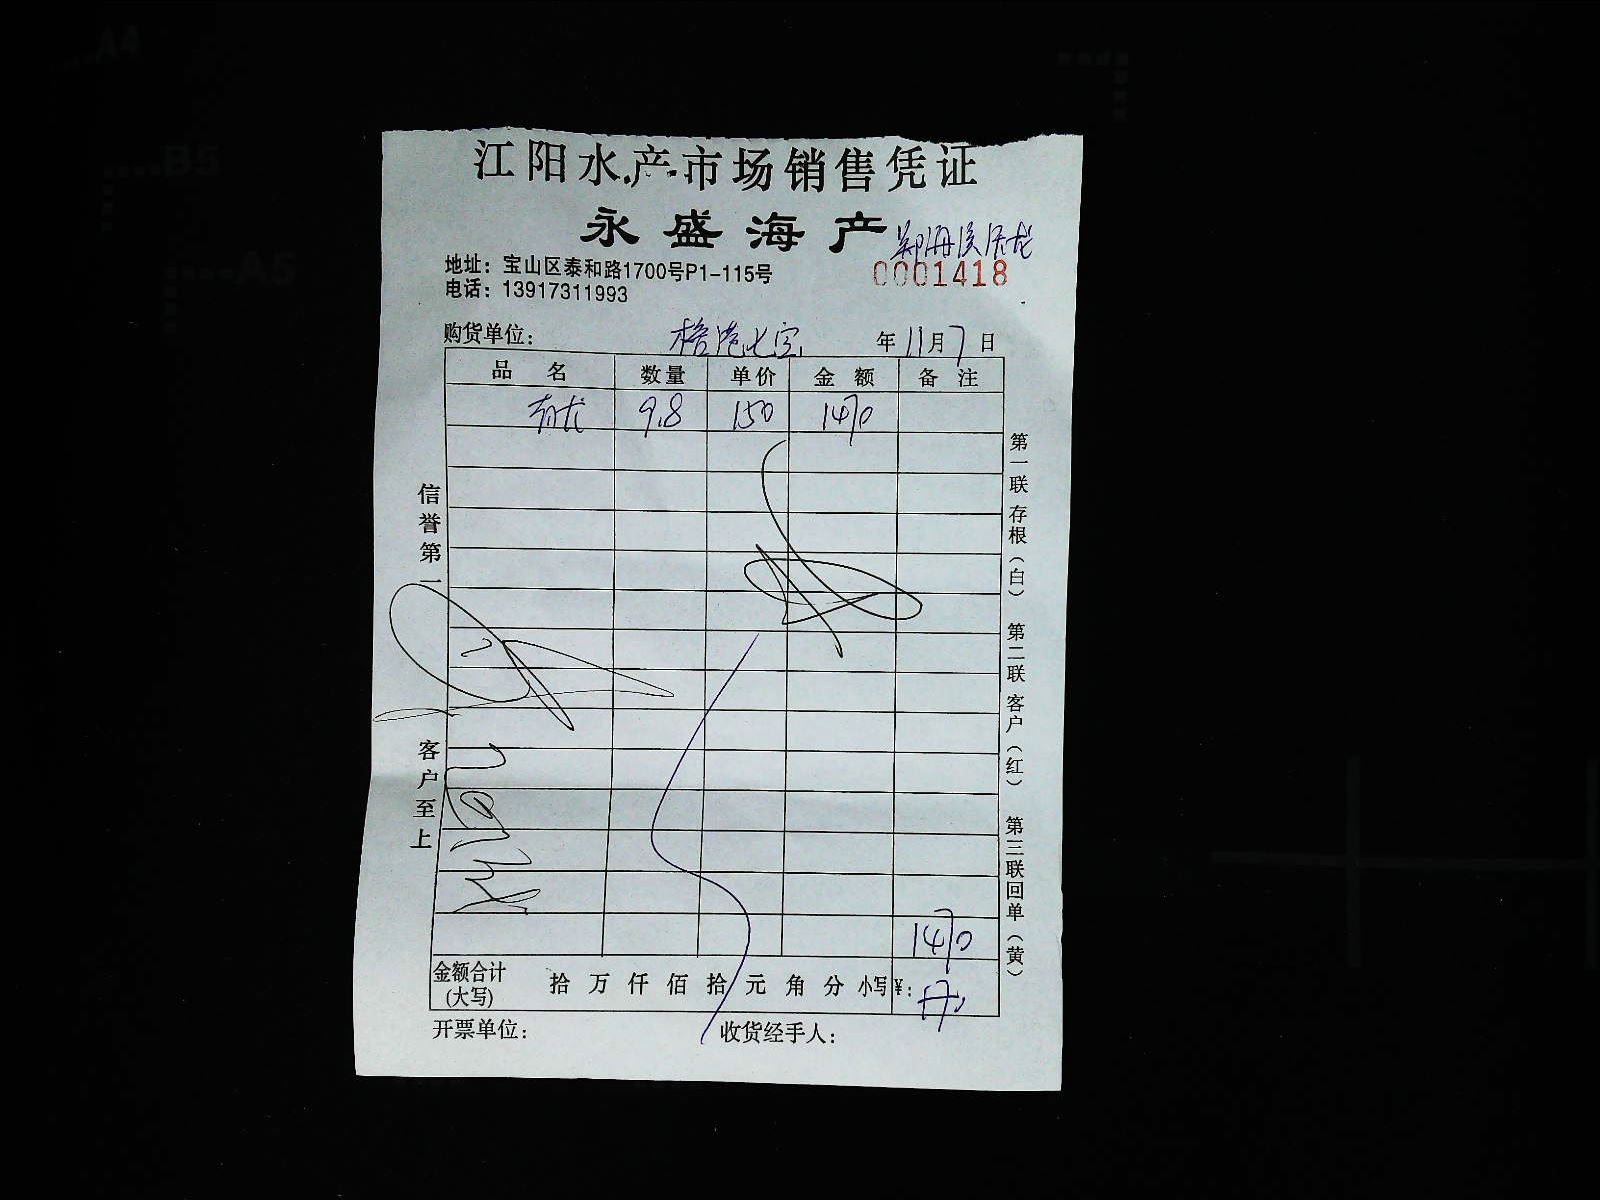 江阳水产市场销售凭证
永盛海产
地址：宝山区泰和路1700号P1-115号
0001418
电话：13917311993
购货单位： 年11月7日
品名 数量 单价 金额 备注
9.8 150 1470
信誉第一 客户至上
第一联存根（白） 第二联客户（红） 第三联回单（黄）
1470
金额合计(大写) 拾 万 仟 佰 拾 元 角 分 小写¥：
开票单位： 收货经手人：